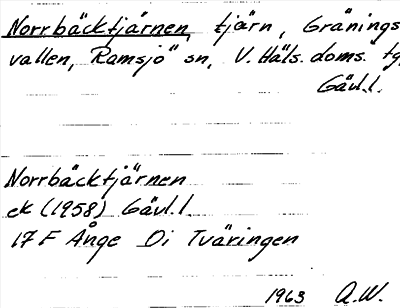 Norrbäcktjärnen, tjärn, Gränings
vallen, Ramsjö sn, V. Häls. doms. tg,
Gävl.l.
Norrbäcktjärnen
ek (1958) Gävl.l.
17 F Ånge Di Tväringen
1963 A.W.